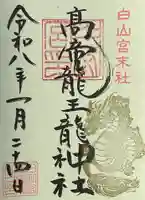 白山宮末社
高龗龍王龍神社
令和八年一月二十四日